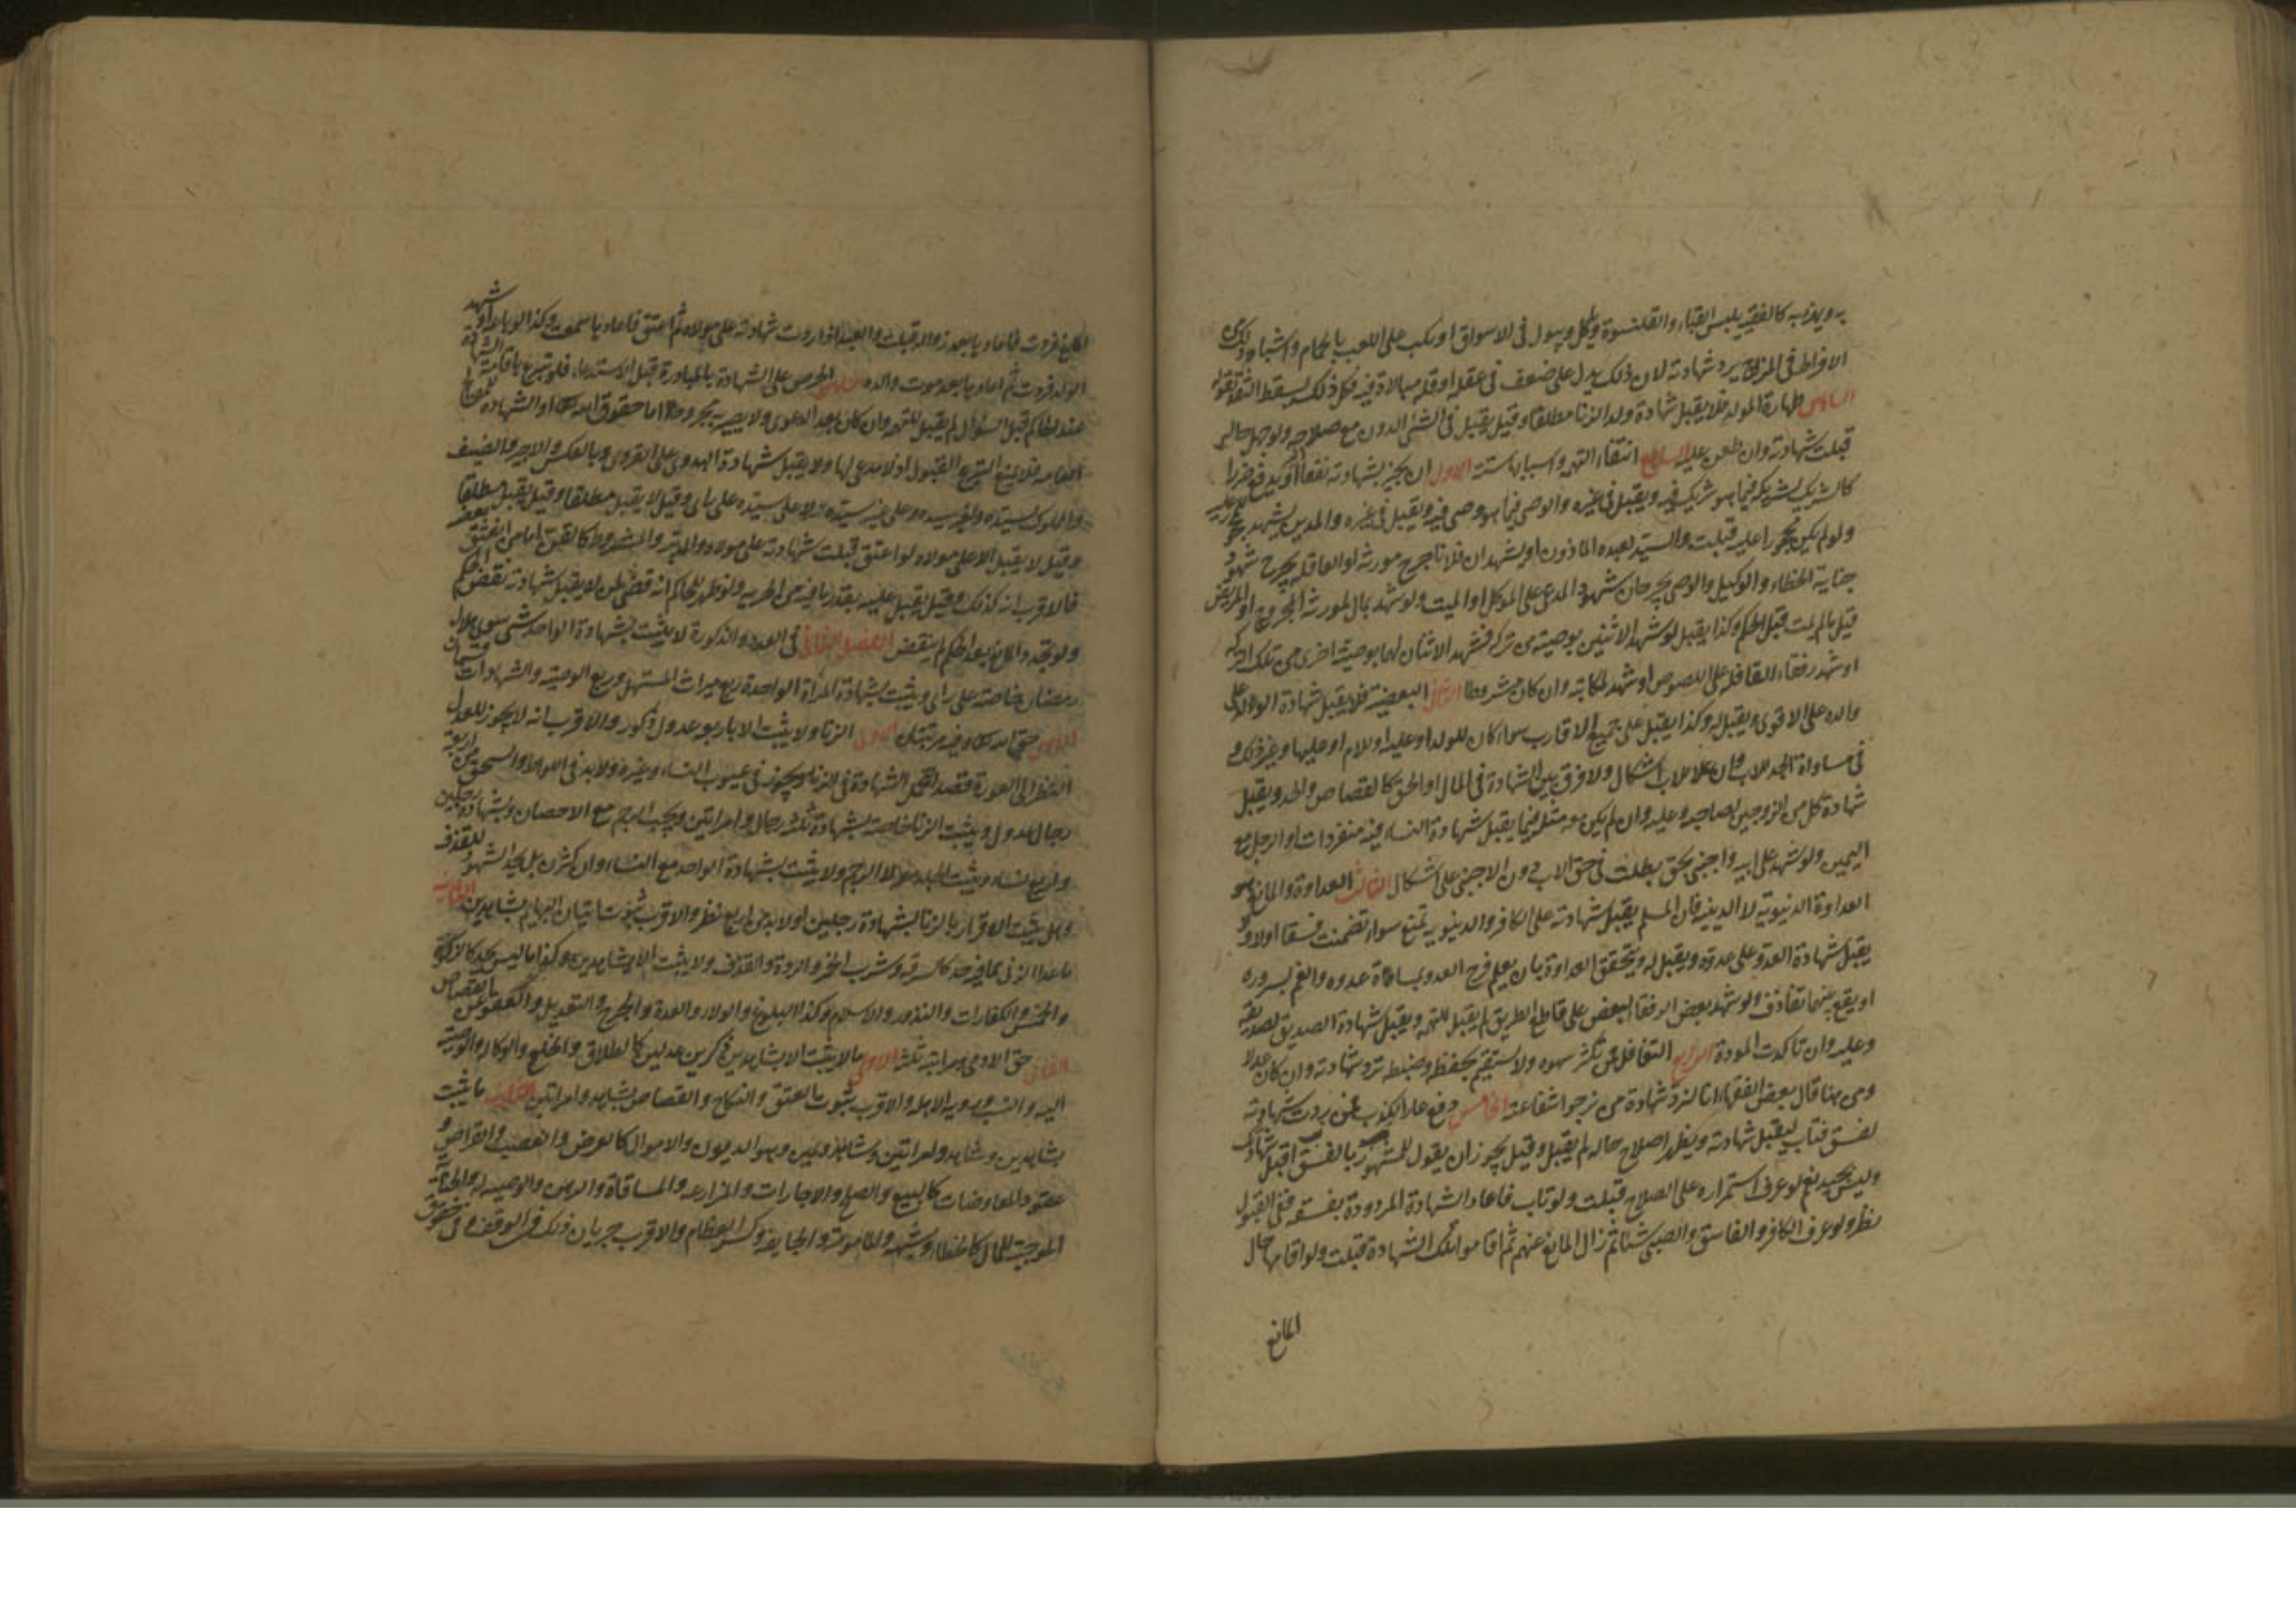 به ويهزء به كالفقيه يلبس القباء والقلنسوة وياكل ويبول فى الاسواق او يكب على اللعب بالحمام واشباه ذلك من
الافراط فى المزاح يرد شهادته لان ذلك يدل على ضعف فى عقله او قلة مبالاة فيه فكل ذلك يسقط الثقة بقوله
السادس طهارة المولد فلا يقبل شهادة ولد الزنا مطلقا وقيل يقبل فى الشئ الدون مع صلاحه ولو جهل حاله
قبلت شهادته وان طعن عليه السابع انتفاء التهمة واسبابها ستة الاول ان يجر بشهادته نفعا او يدفع ضررا
كالشريك لشريكه فيما هو شريك فيه ويقبل فى غيره والوصى فيما هو وصى فيه ويقبل فى غيره والمدين يشهد للمحجور عليه
ولو لم يكن محجورا عليه قبلت والسيد لعبده الماذون او يشهد ان فلانا جرح مورثه او العاقلة بجرح شهود
جناية الخطاء والوكيل والوصى يجرحان شهود المدعى على الموكل او الميت ولو شهد بمال لمورثه المجروح او المريض
قبل ما لم يمت قبل الحكم وكذا يقبل لو شهدا لاثنين بوصية من تركة فشهد الاثنان لهما بوصية اخرى من تلك التركة
او شهد رفقاء القافلة على اللصوص او شهد لمكاتبه وان كان مشروطا الثانى البعضية فلا يقبل شهادة الولد على
والده على الاقوى ويقبل له وكذا يقبل على جميع الاقارب سواء كان للولد او عليه او للام او عليها وغير ذلك و
فى مساواة الجد للاب وان علا للاب اشكال ولا فرق بين الشهادة فى المال او الحق كالقصاص والحد ويقبل
شهادة كل من الزوجين لصاحبه وعليه وان لم يكن معه مثله فيما يقبل شهادة النساء فيه منفردات او الرجل مع
اليمين ولو شهد على ابيه واجنبى بحق بطلت فى حق الاب دون الاجنبى على اشكال الثالث العداوة والمانع هو
العداوة الدنيوية لا الدينية فان المسلم يقبل شهادته على الكافر والدنيوية تمنع سواء تضمنت فسقا او لا و
يقبل شهادة العدو على عدوه ويقبل له ويتحقق العداوة بان يعلم فرح العدو بمساءة عدوه والغم بسروره
او يقع بينهما تقاذف ولو شهد بعض الرفقاء لبعض على قاطع الطريق لم يقبل للتهمة ويقبل شهادة الصديق لصديقه
وعليه وان تاكدت المودة الرابع التغافل فمن كثر سهوه ولا يستقيم تحفظه وضبطه ترد شهادته وان كان عدلا
ومن هنا قال بعض الفقهاء انا لنرد شهادة من نرجو شفاعته الخامس دفع عار الكذب فمن ردت شهادته
لفسق فتاب ليقبل شهادته ويظهر اصلاح حاله لم يقبل وقيل يجوز ان يقول للمشهور بالفسق تب اقبل شهادتك
وليس بجيد نعم لو عرف استمراره على الصلاح قبلت ولو تاب فاعاد الشهادة المردودة بفسقه ففى القبول
نظر ولو عرف الكافر والفاسق والصبى شيئا ثم زال المانع عنهم ثم اقاموا تلك الشهادة قبلت ولو اقامها حال
المانع
المانع فردت فاعادها بعد زواله قبلت والعبد اذا ردت شهادته على مولاه ثم اعتق فاعادها سمعت وكذا لو شهد على
الولد فردت ثم اعادها بعد موت والده السادس الحرص على الشهادة بالمبادرة قبل الاستدعاء فلو تبرع باقامة الشهادة
عند الحاكم قبل السؤال لم يقبل للتهمة وان كان بعد الدعوى ولا يصير به مجروحا اما حقوق الله تعالى او الشهادة للمصالح
العامة فلا يمنع التبرع القبول اذ لا مدعى لها ولا يقبل شهادة البدوى على القروى وبالعكس والاجير والضيف
والمملوك لسيده ولغير سيده وعلى غير سيده لا على سيده على راى وقيل لا يقبل مطلقا وقيل يقبل مطلقا
وقيل لا يقبل الا على مولاه ولو اعتق قبلت شهادته على مولاه والمدبر والمشروط كالقن اما من انعتق بعضه
فالاقرب انه كذلك وقيل يقبل عليه بقدر ما فيه من الحرية ولو ظهر للحاكم انه قضى بمن لا يقبل شهادته نقض الحكم
ولو تجدد المانع بعد الحكم لم ينقض الفصل الثانى فى العدد والذكورة لا يثبت بشهادة الواحد شئ سوى هلال
رمضان خاصة على راى ويثبت بشهادة المراة الواحدة ربع ميراث المستهل وربع الوصية والشهادات قسمان
الاول حق الله تعالى وفيه مرتبتان الاول الزنا ولا يثبت الا باربعة عدول ذكور والاقرب انه لا يجوز للعدل
النظر الى العورة قصدا لتحمل الشهادة فى الزنا ويجوز فى عيوب النساء وغيره ولا بد فى اللواط والسحق من اربعة
رجال عدول ويثبت الزنا خاصة بشهادة ثلثة رجال وامراتين ويجب الرجم مع الاحصان وبشهادة رجلين
واربع نساء ويثبت الجلد لا الرجم ولا يثبت بشهادة الواحد مع النساء وان كثرن بل يحد الشهود للقذف
وهل يثبت الاقرار بالزنا بشهادة رجلين او لا بد من اربع نظر والاقرب ثبوت اتيان البهائم بشاهدين الثانية
ما عدا الزنى مما فيه حد كالسرقة وشرب الخمر والردة والقذف ولا يثبت الا بشاهدين وكذا ما ليس بحد كالزكوة
والخمس والكفارات والنذور والاسلام وكذا البلوغ والولاء والعدة والجرح والتعديل والعفو عن القصاص
الثانى حق الادمى ومراتبه ثلثة الاولى ما لا يثبت الا بشاهدين ذكرين عدلين كالطلاق والخلع والوكالة والوصية
اليه والنسب ورؤية الاهلة والاقرب ثبوت العتق والنكاح والقصاص بشاهد وامراتين الثانية ما يثبت
بشاهدين وشاهد وامراتين وشاهد ويمين وهو الديون والاموال كالقرض والغصب والقراض و
عقود المعاوضات كالبيع والصلح والاجارات والمزارعة والمساقاة والرهن والوصية له والجناية
الموجبة للمال كالخطاء وشبهه والمامومة والجايفة وكسر العظام والاقرب جريان ذلك فى الوقف وفى حقوق